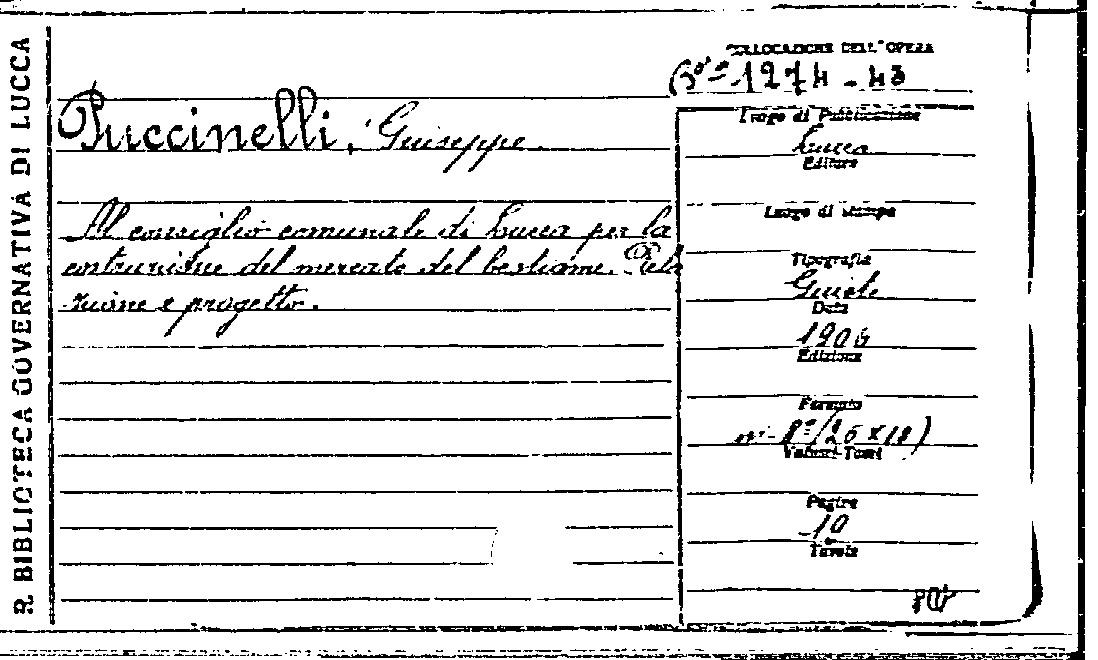 R. BIBLIOTECA GOVERNATIVA DI LUCCA
COLLOCAZIONE DELL'OPERA
Bª 1274-43
Puccinelli, Giuseppe.
Al consiglio comunale di Lucca per la
costruzione del mercato del bestiame. Rela
zione e progetto.
Luogo di Pubblicazione
Lucca
Editore
Luogo di stampa
Tipografia
Giusti
Data
1906
Edizione
Formato
in-8º (26x18)
Volumi-Tomi
Pagine
10
Tavole